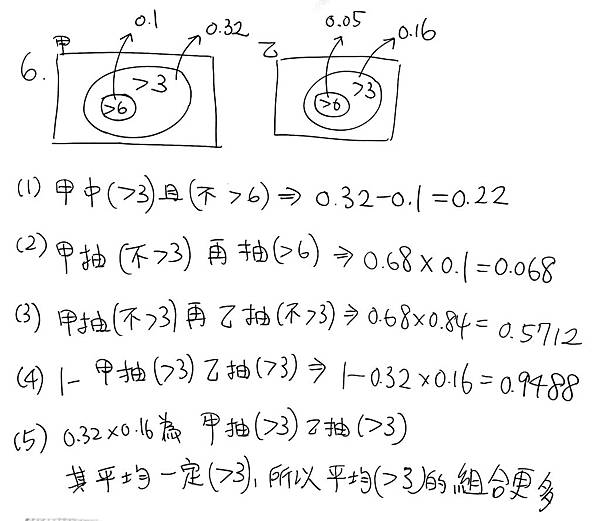 0.1 0.32 0.05 0.16
甲 乙
6. >3 >6 >3 >6
(1) 甲中(>3)且(不>6) ⇒ 0.32-0.1=0.22
(2) 甲抽(不>3)再抽(>6) ⇒ 0.68×0.1=0.068
(3) 甲抽(不>3)再乙抽(不>3) ⇒ 0.68×0.84=0.5712
(4) 1- 甲抽(>3)乙抽(>3) ⇒ 1-0.32×0.16=0.9488
(5) 0.32×0.16為 甲抽(>3)乙抽(>3)
其平均一定(>3),所以平均(>3)的組合更多